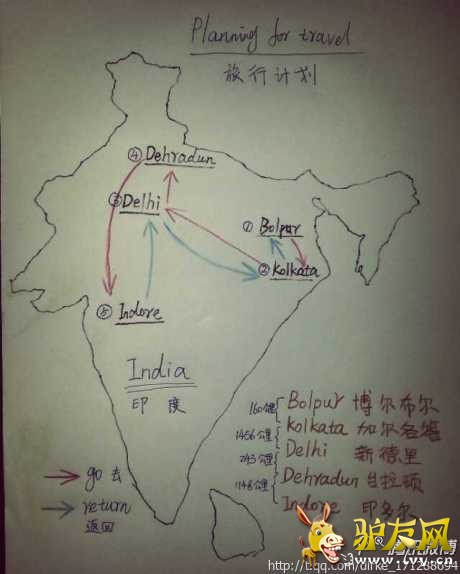 Planning for travel
旅行计划
④ Dehradun
③ Delhi
① Bolpur
② Kolkata
⑤ Indore
India
印度
go 去
return
返回
160公里
1456公里
243公里
1148公里
Bolpur 博尔布尔
Kolkata 加尔各答
Delhi 新德里
Dehradun 拉顿
Indore 印多尔
驴友网
www.lvy.cn
腾讯微博